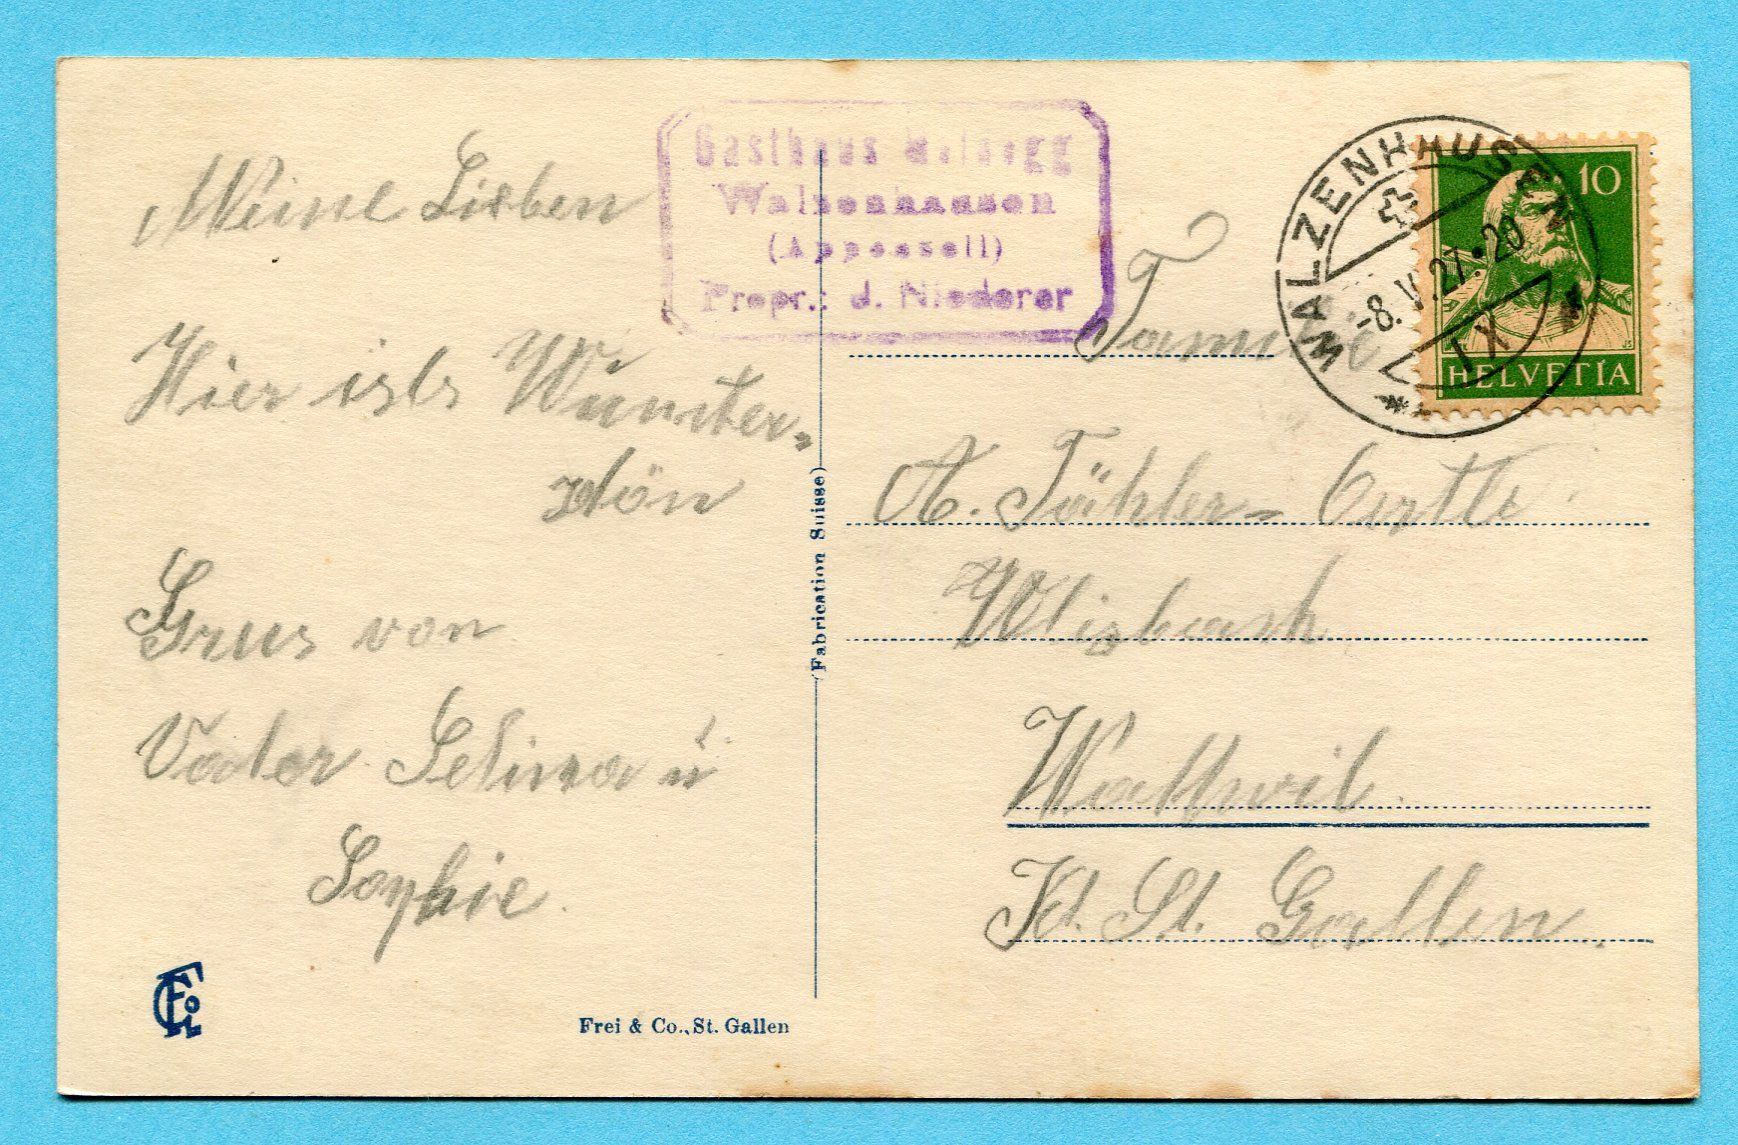 Meine Lieben
Hier ists Wunder=
schön
Grus von
Vater Selina u
Sophie.
Frei & Co., St. Gallen
(Fabrication Suisse)
Gasthaus
Walzenhausen
(Appenzell)
Propr.: J. Niederer
WALZENHAUSEN
-8. V. 27. 20
IX
10
HELVETIA
Familie
A. Tähler-
Wattwil.
Kt. St. Gallen.